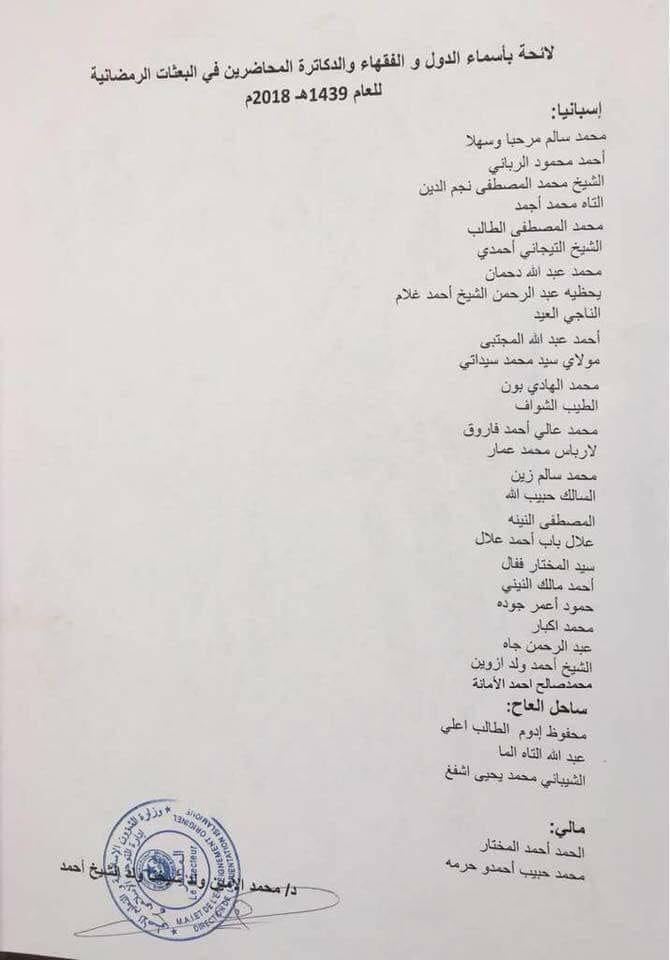 لائحة بأسماء الدول و الفقهاء والدكاترة المحاضرين في البعثات الرمضانية
للعام 1439هـ 2018م
إسبانيا:
محمد سالم مرحبا وسهلا
أحمد محمود الرباني
الشيخ محمد المصطفى نجم الدين
التاه محمد أجمد
محمد المصطفى الطالب
الشيخ التيجاني أحمدي
محمد عبد الله دحمان
يحظيه عبد الرحمن الشيخ أحمد غلام
الناجي العيد
أحمد عبد الله المجتبى
مولاي سيد محمد سيداتي
محمد الهادي بون
الطيب الشواف
محمد عالي أحمد فاروق
لارباس محمد عمار
محمد سالم زين
السالك حبيب الله
المصطفى النينه
علال باب أحمد علال
سيد المختار ففال
أحمد مالك النيني
حمود أعمر جوده
محمد اكبار
عبد الرحمن جاه
الشيخ أحمد ولد ازوين
محمدصالح احمد الأمانة
ساحل العاج:
محفوظ إدوم الطالب اعلي
عبد الله التاه الما
الشيباني محمد يحيى اشفغ
مالي:
الحمد أحمد المختار
محمد حبيب أحمدو حرمه
د/ محمد الأمين ولد ولد الشيخ أحمد
وزارة الشؤون الإسلامية
المدير
Le Directeur
M.A.I.ET DE L'ENSEIGNEMENT ORIGINEL
DIRECTION DE L'ORIENTATION ISLAMIQUE